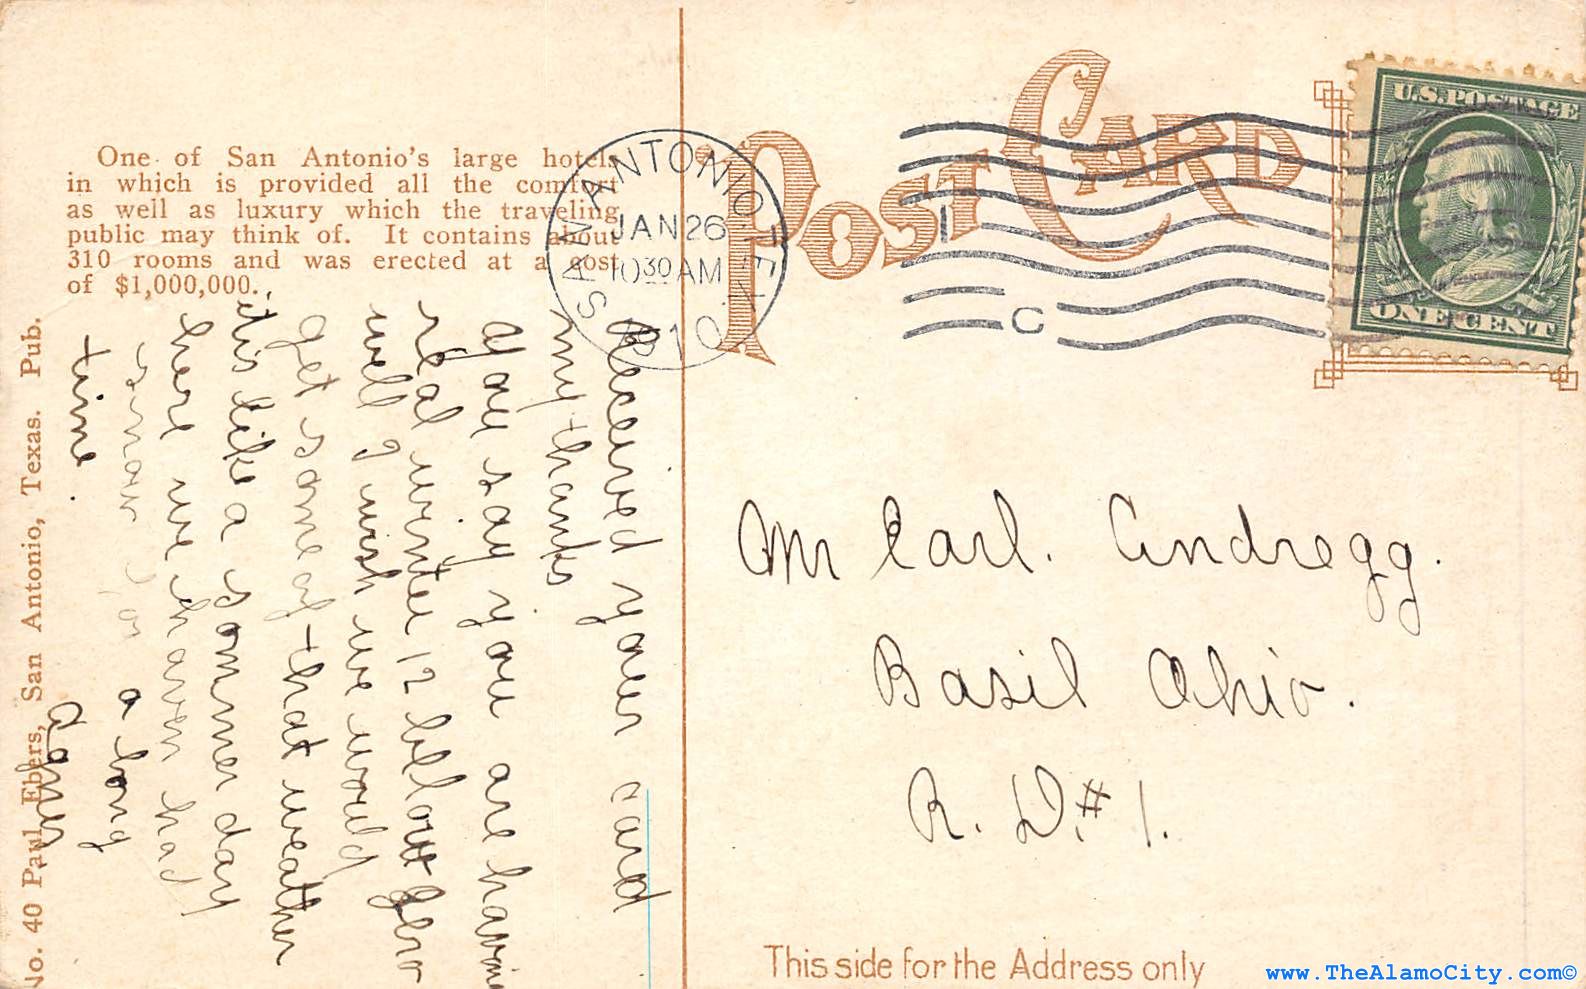 One of San Antonio's large hotels
in which is provided all the comfort
as well as luxury which the traveling
public may think of. It contains about
310 rooms and was erected at a cost
of $1,000,000.
No. 40 Paul Ebers, San Antonio, Texas. Pub.
Received your card
my thanks
you say you are having
real winter 12 bellow zero
well I wish we would
get some of that weather
it is like a sommer day
here we haven had
snow for a long
time.
Agnes
POST CARD
SAN ANTONIO, TEX.
JAN 26
10 30 AM
1910
1
C
U.S. POSTAGE
ONE CENT
Mr Carl. Andregg.
Basil Ohio.
R. D. # 1.
This side for the Address only
www.TheAlamoCity.com©